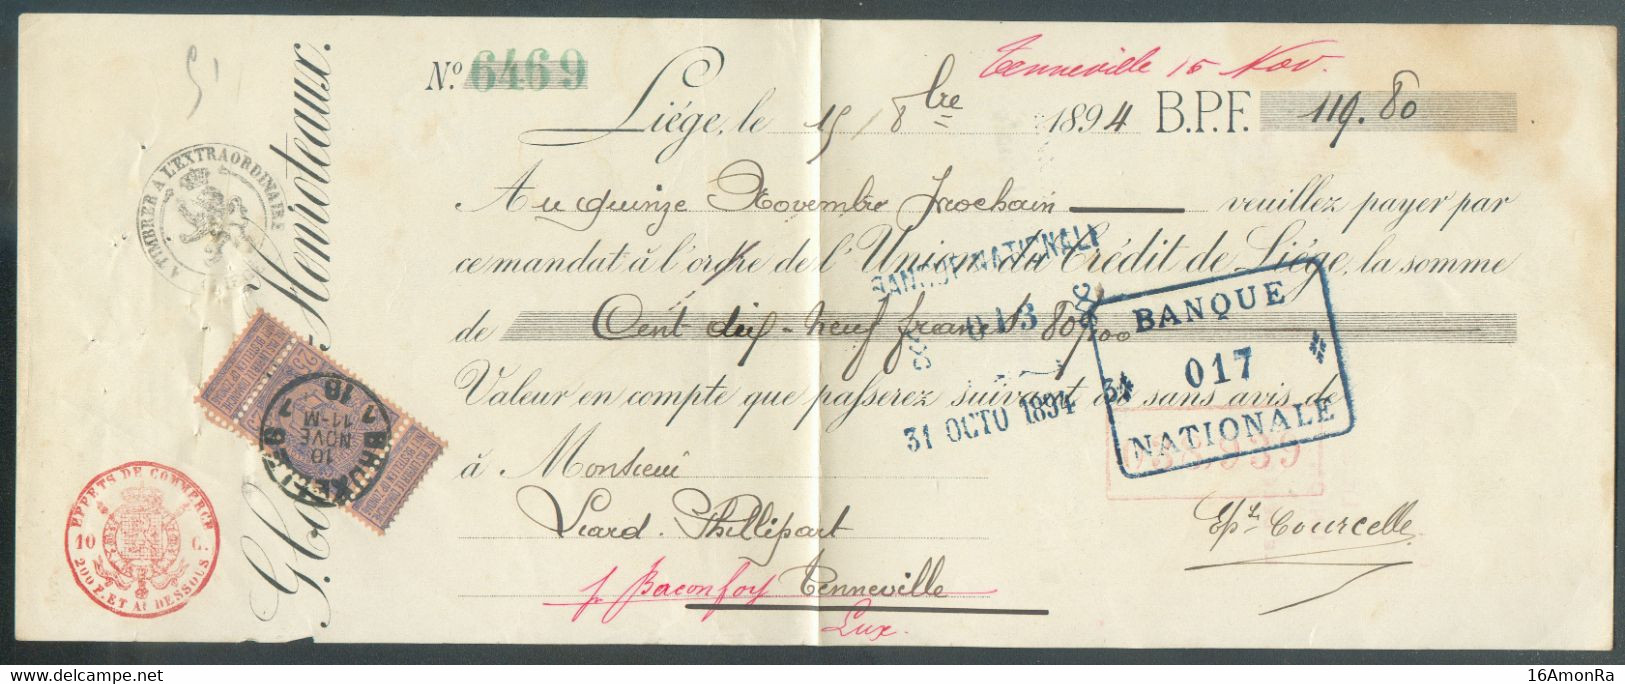 Tenneville 15 Nov.
Nº 6469
Liége, le 15/8bre 1894 B.P.F. 119.80
Au quinze Novembre prochain veuillez payer par
ce mandat à l'ordre de l'Union du Crédit de Liége, la somme
de Cent dix-neuf francs 80/00
Valeur en compte que passerez suivant ou sans avis de
à Monsieur
Liard-Phillipart
p. Baconfoy Tenneville
Lux.
Courcelle
Henroteaux.
A TIMBRER A L'EXTRAORDINAIRE
EFFETS DE COMMERCE
10 C.
200 F. ET AU DESSOUS
10
NOVE
11-M
BANQUE NATIONALE
013
31 OCTO 1894
BANQUE
017
NATIONALE
038,939
16AmonRa